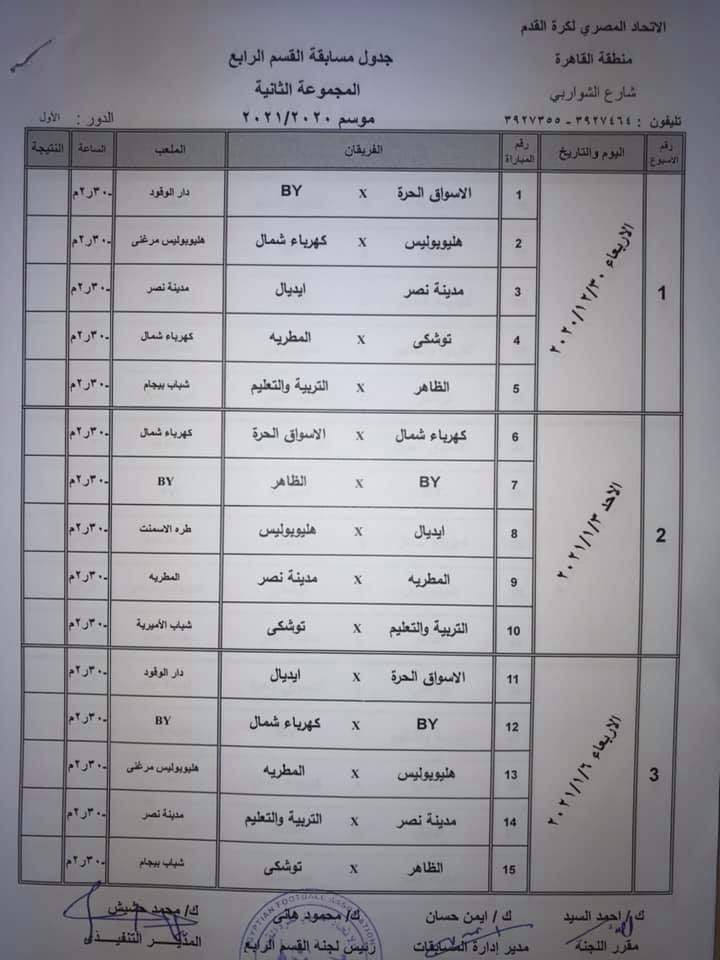 الاتحاد المصري لكرة القدم
منطقة القاهرة
شارع الشواربي
تليفون : ٣٩٢٧٤٦٤ - ٣٩٢٧٣٥٥
جدول مسابقة القسم الرابع
المجموعة الثانية
موسم ٢٠٢١/٢٠٢٠
الدور : الأول
رقم الاسبوع اليوم والتاريخ رقم المباراة الفريقان الملعب الساعة النتيجة
1 الاربعاء ٢٠٢٠/١٢/٣٠
1 الاسواق الحرة X BY دار الوقود ٢٫٣٠م
2 هليوبوليس X كهرباء شمال هليوبوليس مرغنى ٢٫٣٠م
3 مدينة نصر ايديال مدينة نصر ٢٫٣٠م
4 توشكى X المطريه كهرباء شمال ٢٫٣٠م
5 الظاهر X التربية والتعليم شباب بيجام ٢٫٣٠م
2 الاحد ٢٠٢١/١/٣
6 كهرباء شمال X الاسواق الحرة كهرباء شمال ٢٫٣٠م
7 BY X الظاهر BY ٢٫٣٠م
8 ايديال X هليوبوليس طره الاسمنت ٢٫٣٠م
9 المطريه X مدينة نصر المطريه ٢٫٣٠م
10 التربية والتعليم X توشكى شباب الأميرية ٢٫٣٠م
3 الاربعاء ٢٠٢١/١/٦
11 الاسواق الحرة X ايديال دار الوقود ٢٫٣٠م
12 BY X كهرباء شمال BY ٢٫٣٠م
13 هليوبوليس X المطريه هليوبوليس مرغنى ٢٫٣٠م
14 مدينة نصر X التربية والتعليم مدينة نصر ٢٫٣٠م
15 الظاهر X توشكى شباب بيجام ٢٫٣٠م
ك/ احمد السيد ك / ايمن حسان ك/ محمود هانى ك/ محمد حشيش
مقرر اللجنة مدير إدارة المسابقات رئيس لجنة القسم الرابع المدير التنفيذى
EGYPTIAN FOOTBALL ASSOCIATION